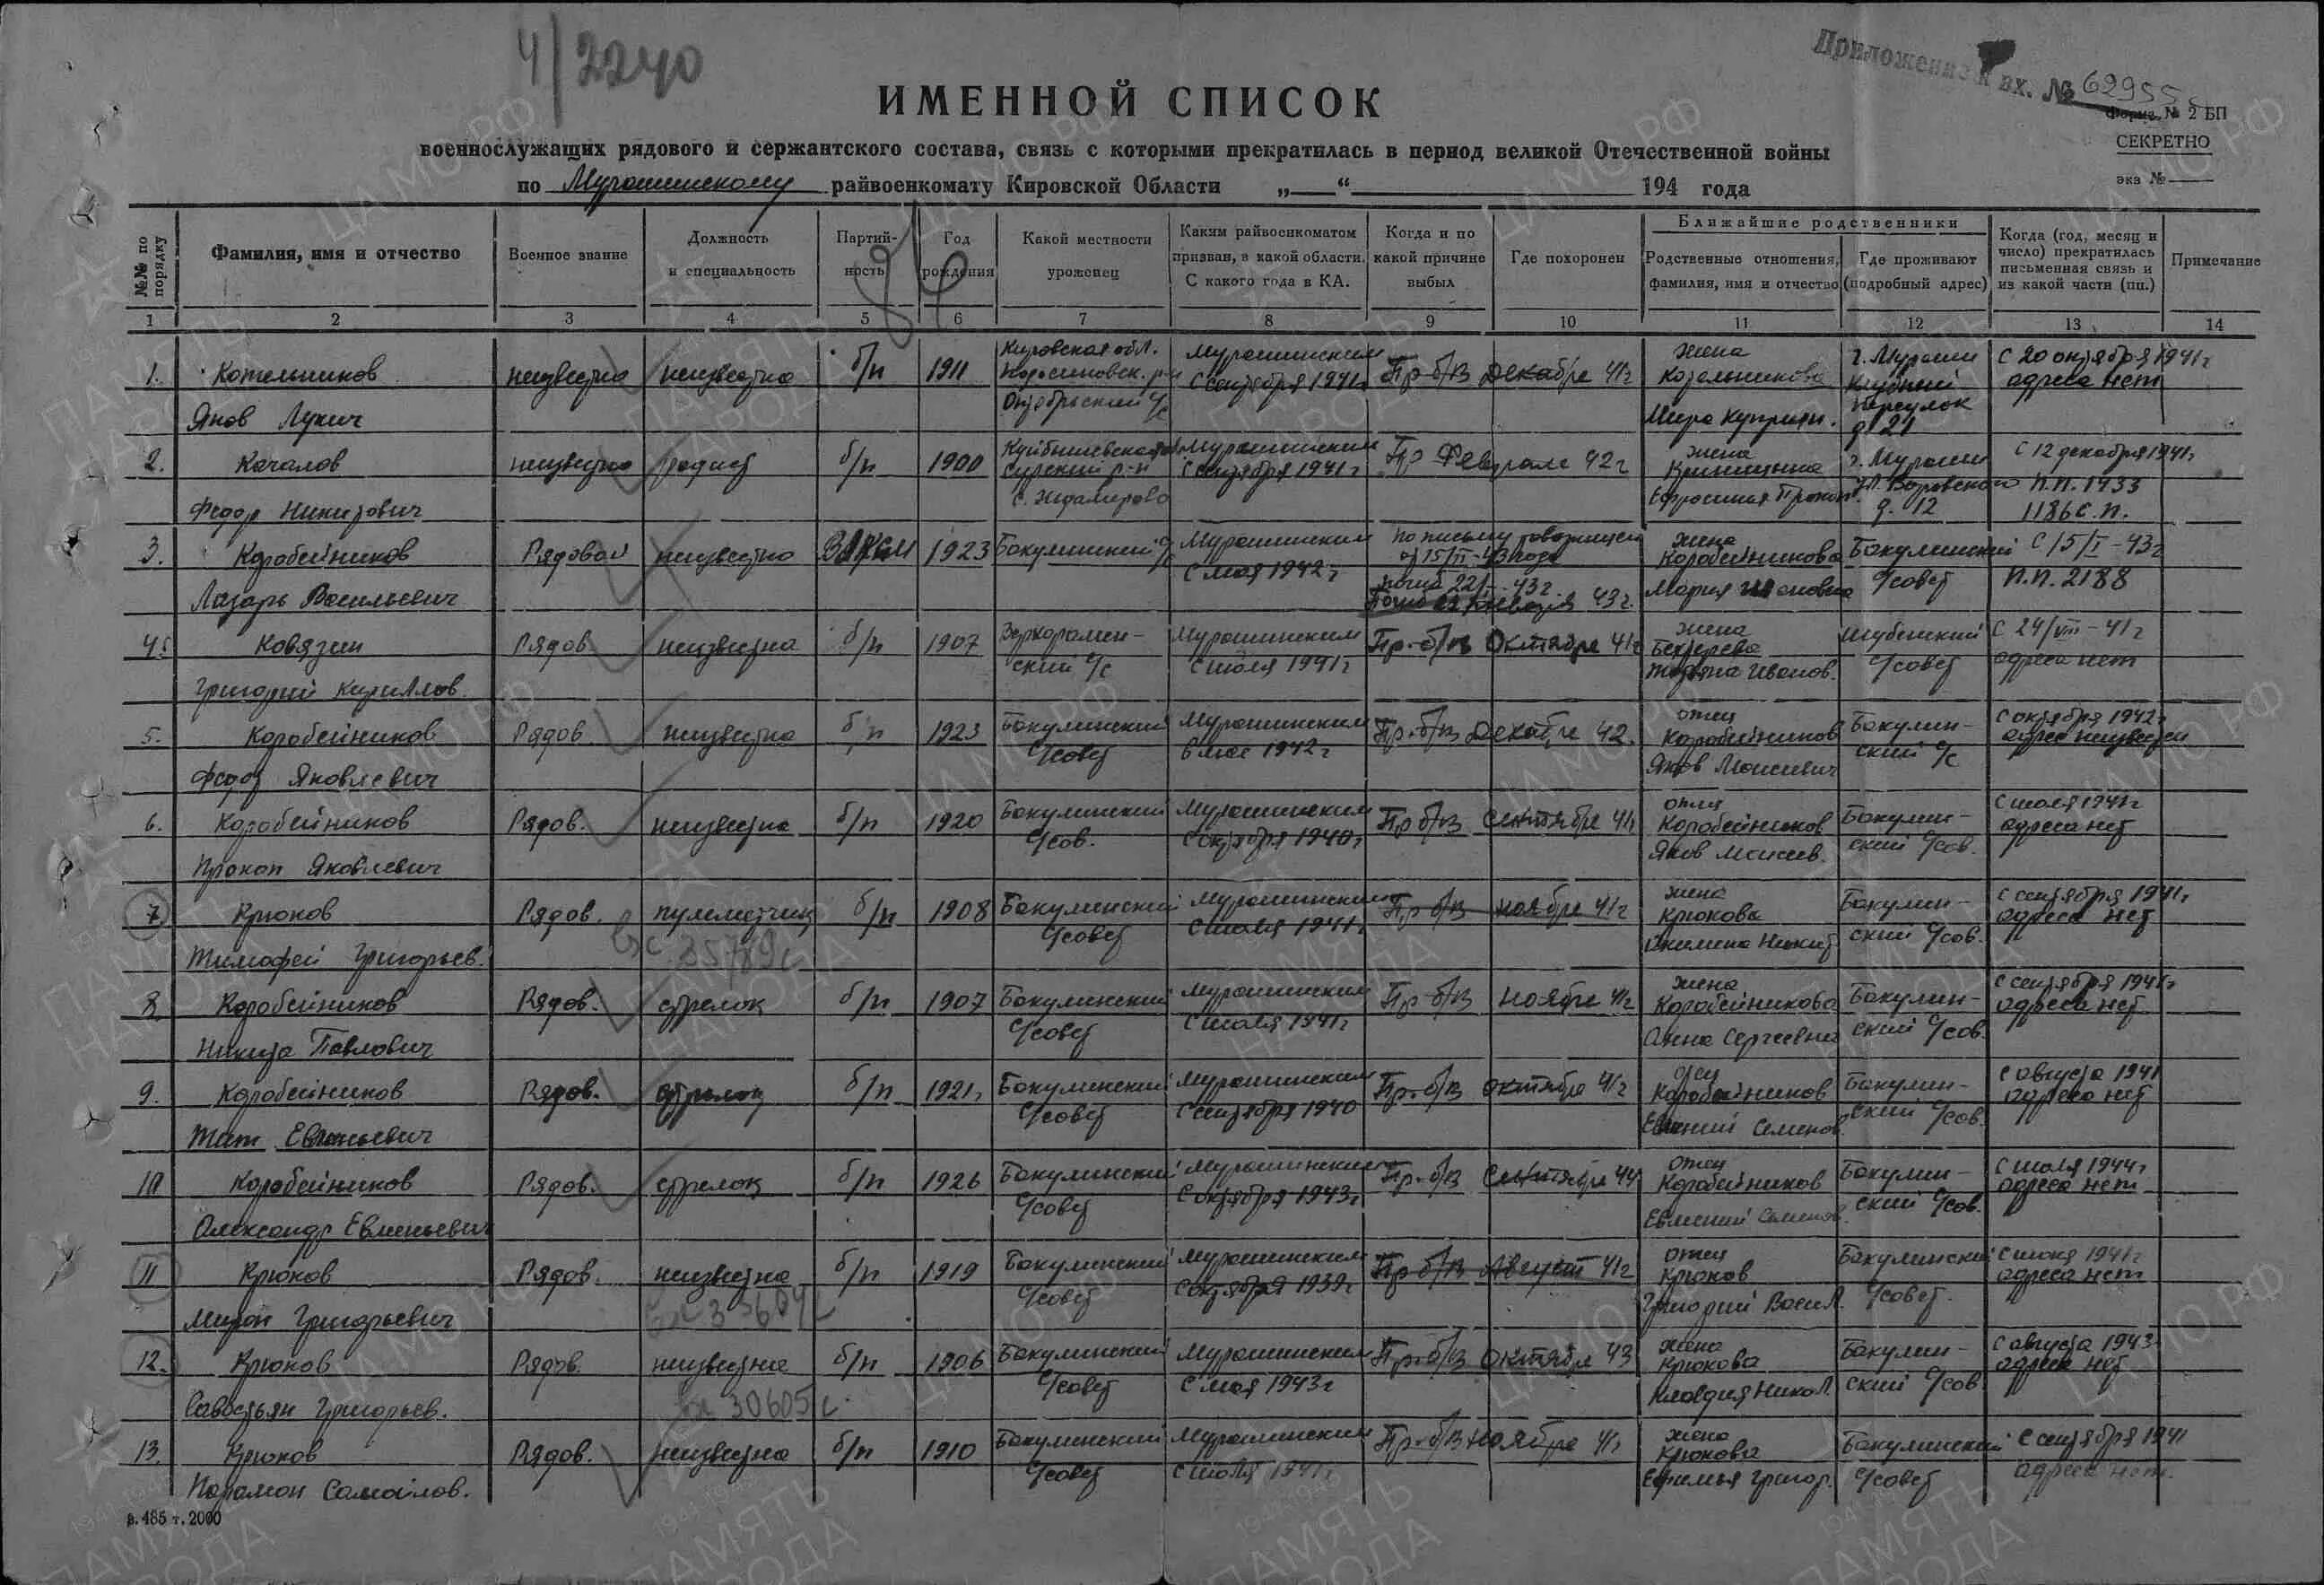 4/2240
Приложение к вх. № 62955с
ИМЕННОЙ СПИСОК
Форма № 2 БП
военнослужащих рядового и сержантского состава, связь с которыми прекратилась в период великой Отечественной войны
СЕКРЕТНО
по Мурашинскому райвоенкомату Кировской Области „—“ 194 года
экз №
№№ по порядку
Фамилия, имя и отчество
Военное звание
Должность и специальность
Партийность
Год рождения
Какой местности уроженец
Каким райвоенкоматом призван, в какой области. С какого года в КА.
Когда и по какой причине выбыл
Где похоронен
Ближайшие родственники
Родственные отношения, фамилия, имя и отчество
Где проживают (подробный адрес)
Когда (год, месяц и число) прекратилась письменная связь и из какой части (пп.)
Примечание
1 2 3 4 5 6 7 8 9 10 11 12 13 14
1. Котельников неизвестно неизвестно б/п 1911 Кировская обл. Мурашинским с сентября 1941г Пр б/в Декабре 41г жена Котельникова г. Мураши с 20 октября 1941г адреса нет
Яков Лукич Октябрьский с/с Куприян. переулок д 21
2. Качалов неизвестно радист б/п 1900 Куйбышевская Сурский р-н Мурашинским с сентября 1941г Пр Феврале 42г жена г. Мураши с 12 декабря 1941г
Федор Никитович Ефросиния Прокоп. ул. Воровского д. 12 п.п. 1433 1186 с.п.
3. Коробейников Рядовой неизвестно ВЛКСМ 1923 Бакулинский с/с Мурашинским с мая 1942г По письму товарищей жена Коробейникова Бакулинский с/совет с 15/I-43г п.п. 2188
Лазарь Васильевич погиб 22/I-43г. 43г. Мария
4. Ковязин Рядов неизвестно б/п 1907 Верхорамен- ский с/с Мурашинским с июля 1941г Пр-б/в Октябре 41г жена Бехтерева с/совет с 24/VIII-41г адреса нет
Григорий Кириллов. Иванов.
5. Коробейников Рядов неизвестно б/п 1923 Бакулинский с/совет Мурашинским в мае 1942г Пр-б/в Декабре 42. отец Коробейников Бакулин- ский с/с с октября 1942г адрес неизвестен
Федор Яковлевич Яков Моисеевич
6. Коробейников Рядов. неизвестно б/п 1920 Бакулинский с/сов. Мурашинским с октября 1940г Пр б/в Сентябре 41г отец Коробейников Бакулин- ский с/сов. с июля 1941г адреса нет
Прокоп Яковлевич Яков Моисеев.
7 Крюков Рядов. пулеметчик б/п 1908 Бакулинский с/совет Мурашинским с июля 1941г Пр б/в ноябре 41г жена Крюкова Бакулин- ский с/сов. с сентября 1941г адреса нет
Тимофей Григорьев. вх 35789с Никит
8. Коробейников Рядов. стрелок б/п 1907 Бакулинский с/совет Мурашинским с июля 1941г Пр-б/в ноябре 41г жена Коробейникова Бакулин- ский с/сов. с сентября 1941г адреса нет
Никита Павлович Анна Сергеевна
9. Коробейников Рядов. стрелок б/п 1921г Бакулинский с/совет Мурашинским с сентября 1940 Пр-б/в октябре 41г отец Коробейников Бакулин- ский с/сов. с августа 1941 адреса нет
Тит Евменьевич Евмений Семенов.
10 Коробейников Рядов. стрелок б/п 1926 Бакулинский с/совет Мурашинским с октября 1943г Пр-б/в Сентябре 44 отец Коробейников Бакулин- ский с/сов. с июля 1944г адреса нет
Александр Евменьевич Евмений Семенов.
11 Крюков Рядов. неизвестно б/п 1919 Бакулинский с/совет Мурашинским с октября 1939г Пр б/в Август 41г отец Крюков Бакулинский с/совет. с июня 1941г адреса нет
Мирон Григорьевич Григорий Васил.
12. Крюков Рядов. неизвестно б/п 1906 Бакулинский с/совет Мурашинским с мая 1943г Пр-б/в Октябре 43 жена Крюкова Бакулин- ский с/сов с августа 1943 адреса нет
Савостьян Григорьев. вх 30605с. Клавдия Никол.
13. Крюков Рядов. неизвестно б/п 1910 Бакулинский с/совет Мурашинским с июля 1941г Пр-б/в ноябре 41г жена Крюкова Бакулинский с/совет с сентября 1941 адреса нет.
Парамон Самойлов. Ефимья Григор.
в. 485 т. 2000